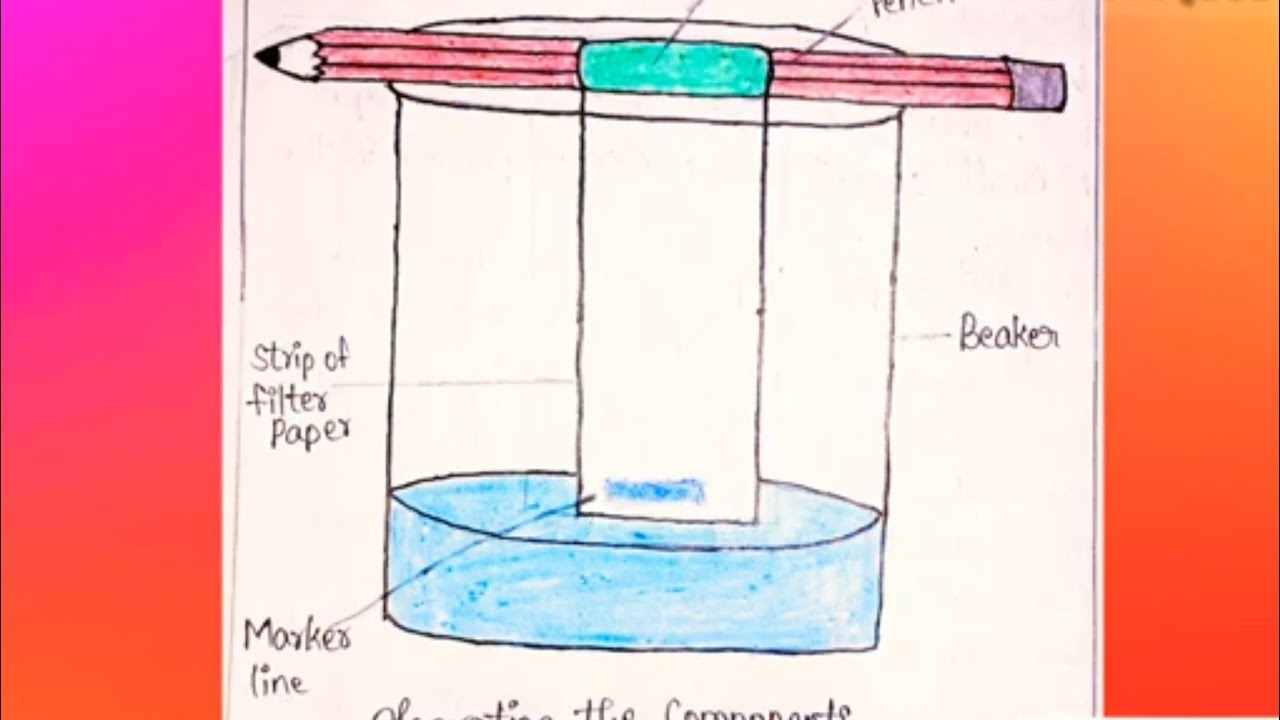 Pencil
Beaker
Strip of
filter
Paper
Marker
line
the Components